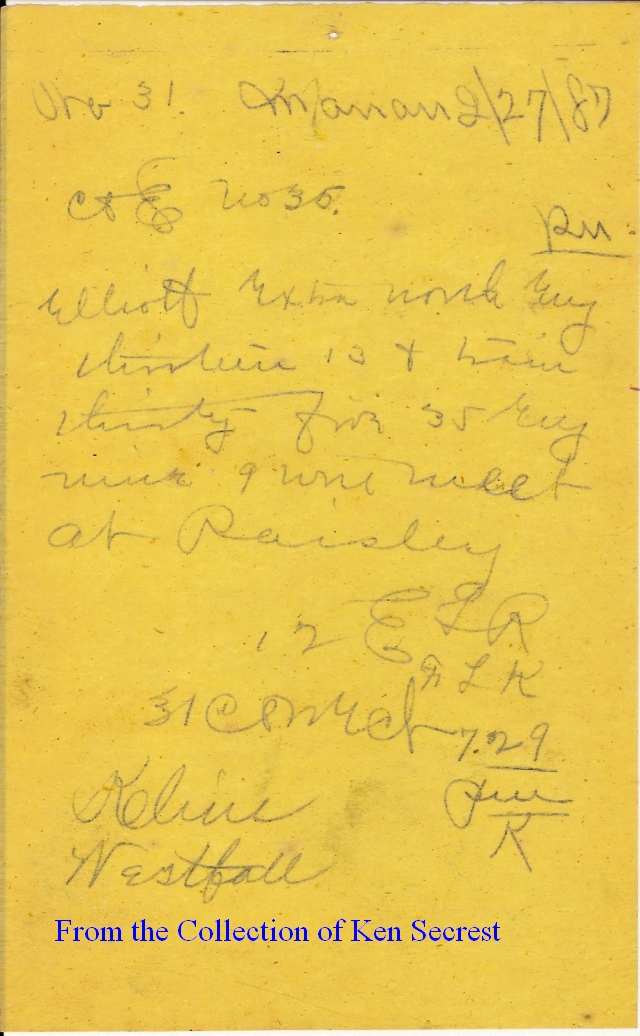 No 31. 2/27/87
C & E No 35.
pm
Elliott Extra north Eng
thirteen 13 & train
thirty five 35 Eng
nine 9 will meet
at Paisley
12 E L R
F L K
31 Correct 7.29
pm
K
Kline
Westfall
From the Collection of Ken Secrest